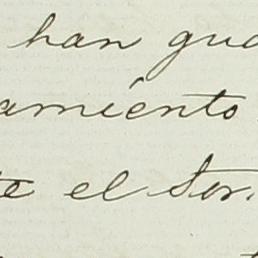 han gua
amiento
te el Sor.